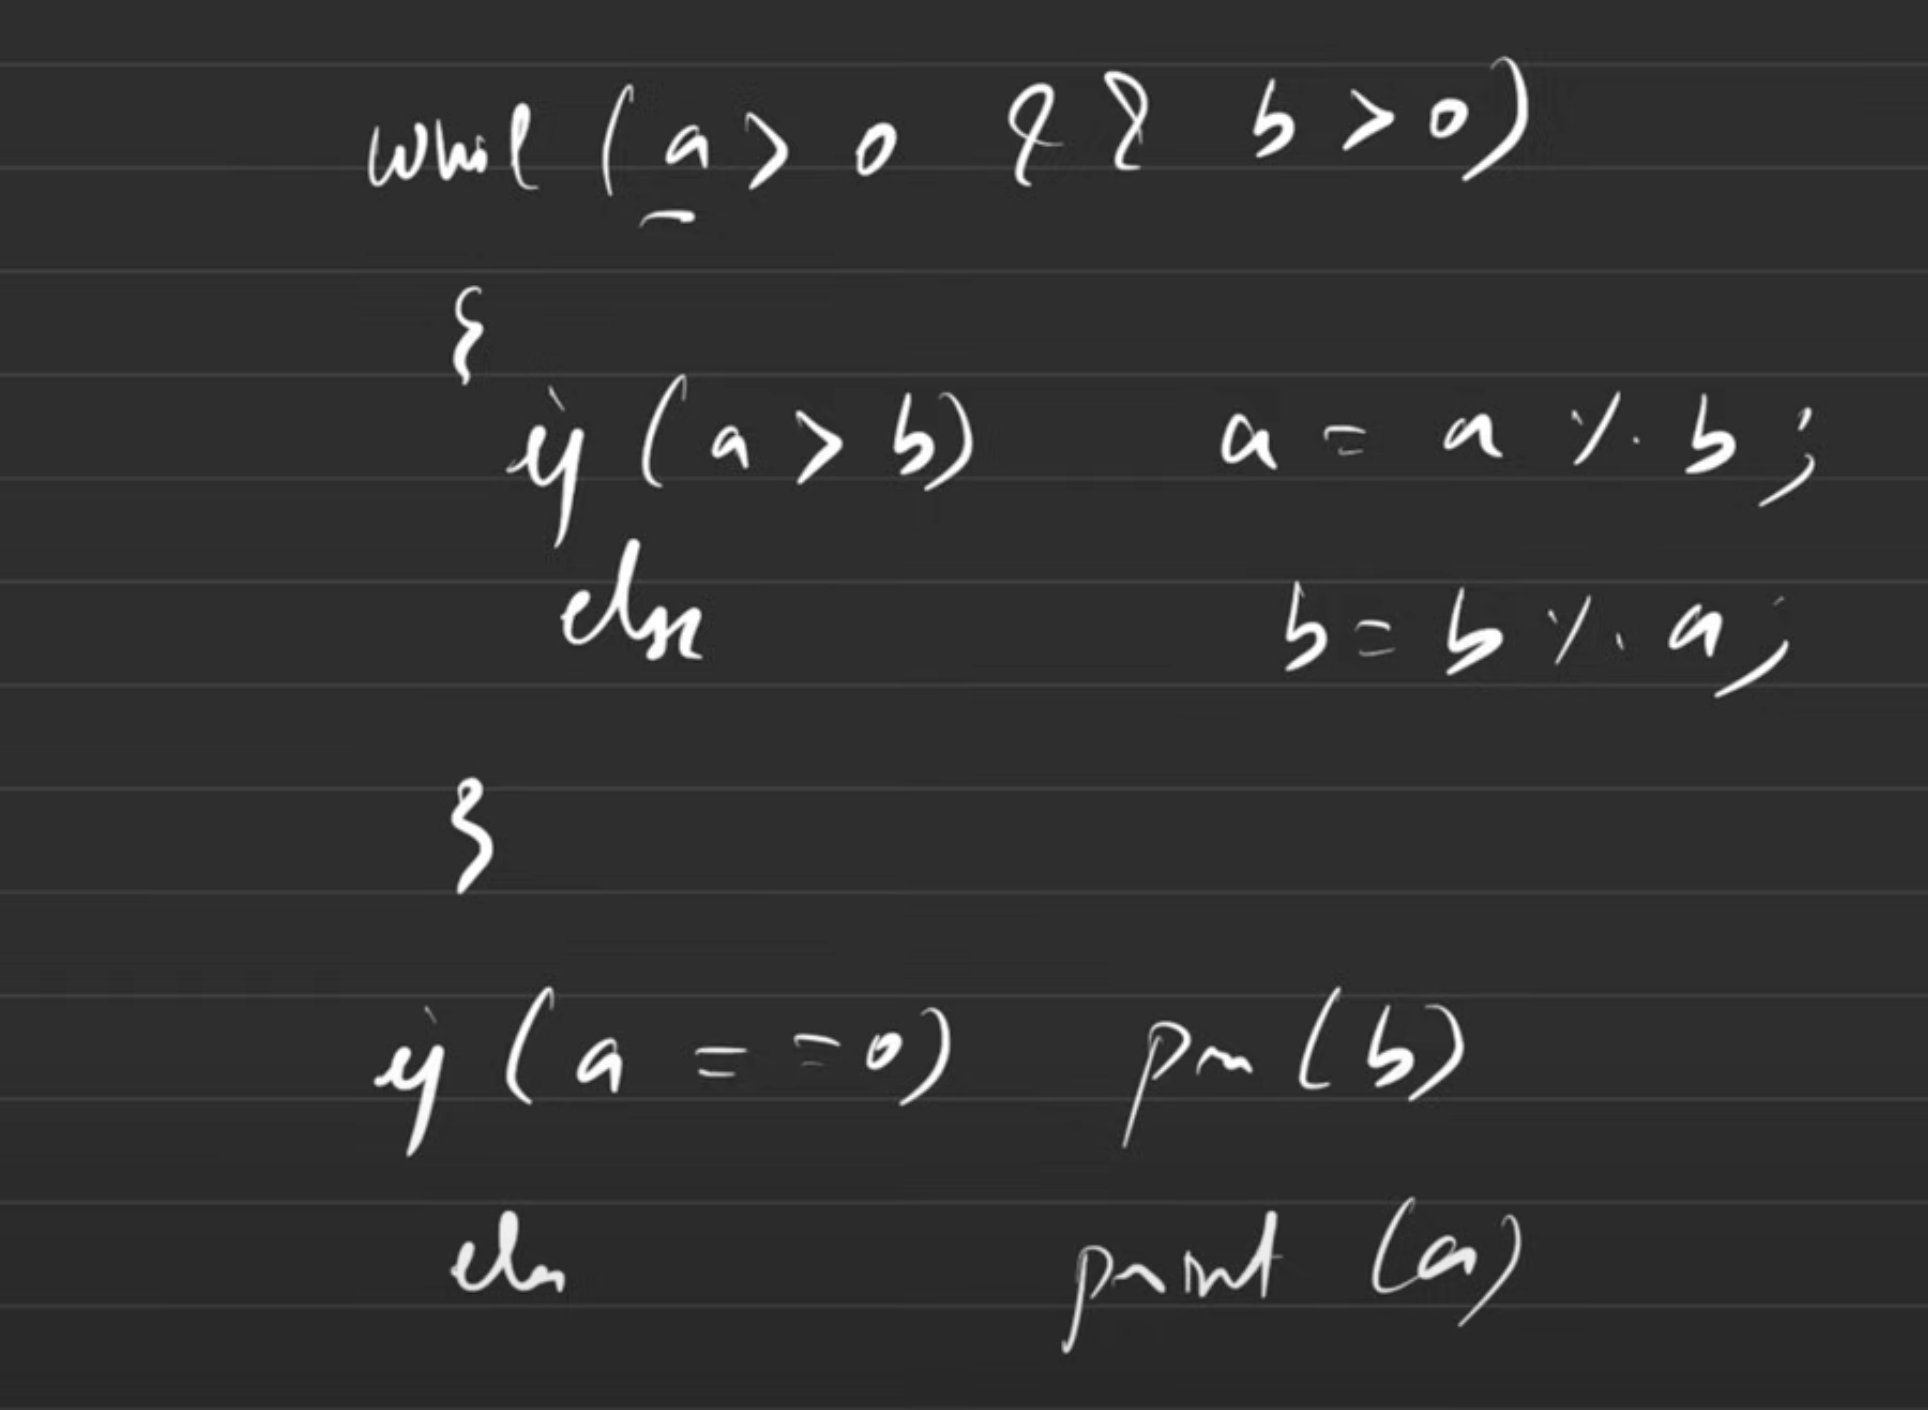 while (a > 0 && b > 0)
{
if (a > b) a = a % b;
else b = b % a;
}
if (a == 0) print (b)
else print (a)